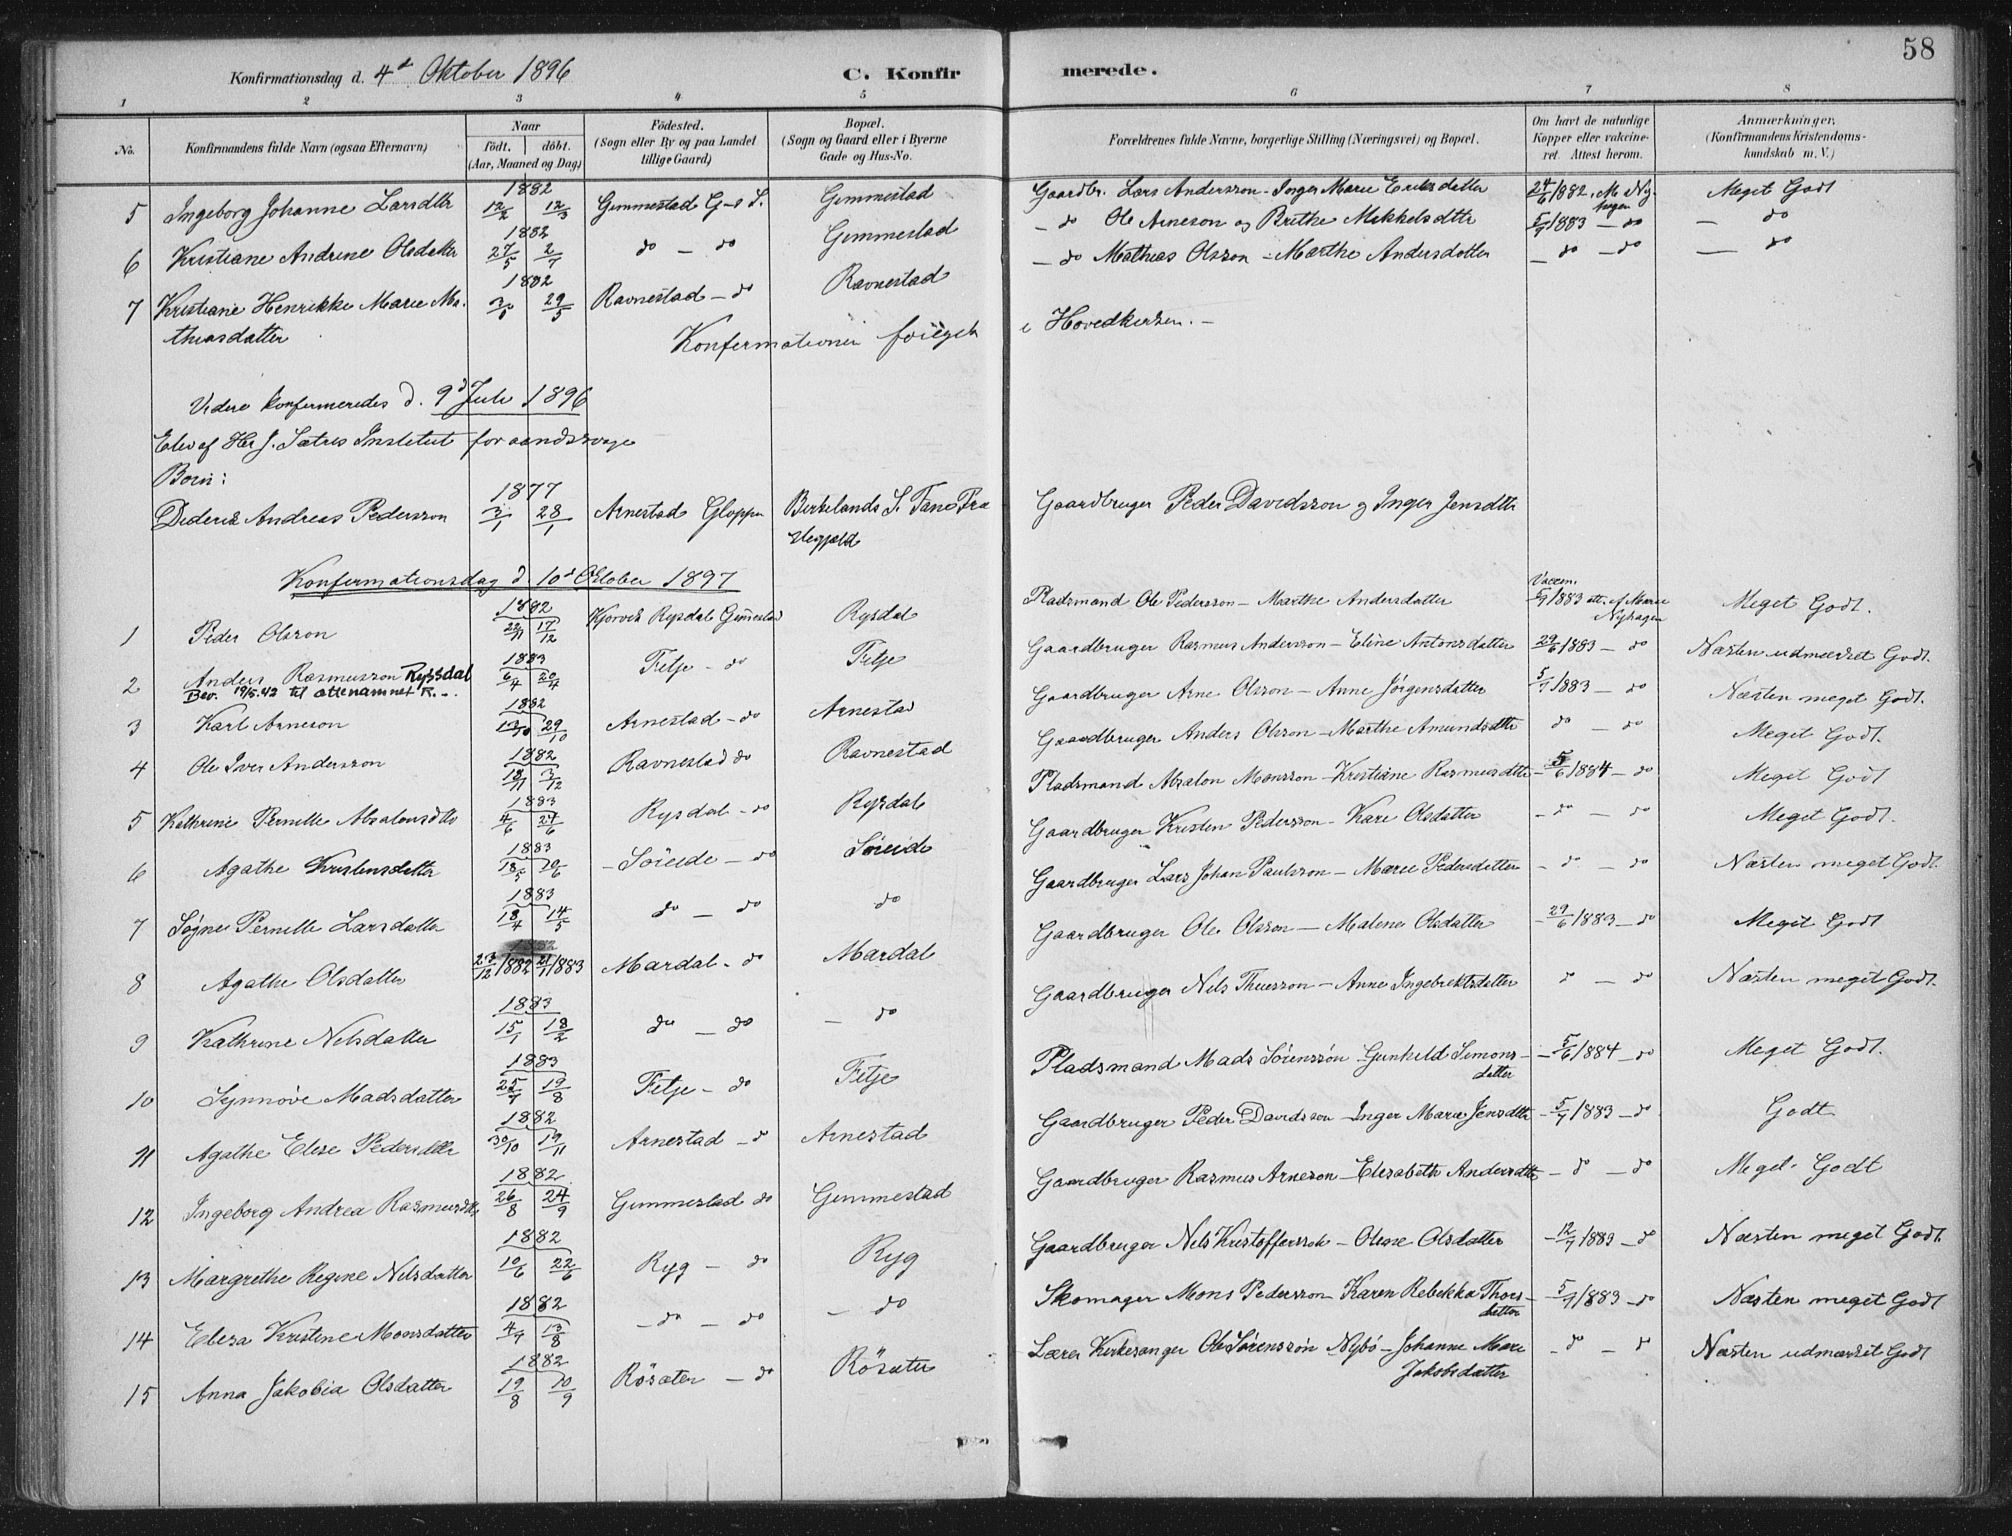 58
Konfirmationsdag d. 4d Oktober 1896 C. Konfirmerede.
1 2 3 4 5 6 7 8
No. Konfirmandens fulde Navn (ogsaa Efternavn) Naar födt. döbt. (Aar, Maaned og Dag) Födested. (Sogn eller By og paa Landet tillige Gaard) Bopæl. (Sogn og Gaard eller i Byerne Gade og Hus-No. Forældrenes fulde Navne, borgerlige Stilling (Næringsvei) og Bopæl. Om havt de naturlige Kopper eller vakcineret. Attest herom. Anmærkninger. (Konfirmandens Kristendomskundskab m. V.)
5 Ingeborg Johanne Larsdtr 1882 12/2 12/3 Gemmestad G-s S. Gemmestad Gaardbr. Lars Andersson - Inger Marie Eriksdatter 24/6 1882 M. Nyhagen Meget Godt
6 Kristiane Andrine Olsdatter 1882 27/5 2/7 do - do Gemmestad - do Ole Arneson og Brithe Mikkelsdttr 5/7 1883 - do - do
7 Kristiane Henrikke Marie Mathiasdatter 1882 29/5 Ravnestad - do Ravnestad - do Mathias Olsson - Marthe Andersdatter - do - do - do
Konfermationen i Hovedkirken. -
Videre konfermeredes d. 9d Juli 1896
Elev af Her J. Sætres Institut for aandssvage
Børn:
Diderik Andreas Pedersson 1877 3/1 28/1 Arnestad Gloppen Birkelands S. Fane Præstegjeld Gaardbruger Peder Davidsson og Inger Jensdttr
Konfermationsdag d. 10d Oktober 1897
1 Peder Olsson 1882 22/11 17/12 Kjorvik Rysdal Gimmestad Rysdal Pladsmand Ole Pedersson - Marthe Andersdatter Vaccin. 5/9 1883 att. af Marie Nyhagen Meget Godt.
2 Anders Rasmusson Ryssdal 1883 6/4 20/4 Fetje - do Fetje Gaardbruger Rasmus Andersson - Eline Antonsdatter 29/6 1883 - do Næsten udmærket Godt.
Bev. 19/5.42 til ættenamnet R. -.
3 Karl Arneson 1882 13/10 29/10 Arnestad - do Arnestad Gaardbruger Arne Olsson - Anne Jörgensdatter 5/7 1883 - do Næsten meget Godt.
4 Ole Iver Andersson 1882 18/11 3/12 Ravnestad do Ravnestad Gaardbruger Anders Olsson - Marthe Amundsdttr do - do Meget Godt.
5 Kathrine Pernille Absalonsdtter 1883 4/6 24/6 Rysdal - do Rysdal Pladsmand Absalon Monsson - Kristiane Rasmusdtter - 5/6 1884 - do Meget Godt
6 Agathe Kristensdatter 1883 18/5 10/6 - Söreide - do Söreide Gaardbruger Kristen Pedersson - Kari Olsdatter - do - do Meget Godt.
7 Søgne Pernille Larsdatter 1883 18/4 14/5 do - do do Gaardbruger Lars Johan Paulsson - Marie Pedersdatter - do - do Næsten meget Godt.
8 Agathe Olsdatter 23/12 1882 21/1 1883 Mardal - do Mardal Gaardbruger Ole Olsson - Malene Olsdatter - 29/6 1883 - do Meget Godt
9 Kathrine Nilsdatter 1883 15/1 18/2 do - do - do Gaardbruger Nils Thuesson - Anne Ingebrektsdatter do - do Næsten meget Godt.
10 Synnöve Madsdatter 1883 25/7 19/8 Fetje - do Fetje Pladsmand Mads Sörensson Gunhild Simonsdatter - 5/6 1884 - do Meget Godt.
11 Agathe Elise Pedersdttr 1882 30/10 19/11 Arnestad - do Arnestad Gaardbruger Peder Davidsson - Inger Marie Jensdttr - 5/7 1883 - do Godt
12 Ingeborg Andrea Rasmusdtr 1882 26/8 24/9 Gemmestad do Gemmestad Gaardbruger Rasmus Arneson - Elisabeth Andersdttr - do - do Meget Godt
13 Margrethe Regine Nilsdatter 1882 10/6 22/6 Ryg - do Ryg Gaardbruger Nils Kristoffersson - Oline Olsdatter - 12/7 1883 - do Næsten meget Godt.
14 Elisa Kristine Monsdatter 1882 4/7 13/8 - do - do - do Skomager Mons Pedersson Karen Rebekka Thorsdatter - 5/7 1883 - do Næsten meget Godt
15 Anna Jakobia Olsdatter 1882 19/8 10/9 Rösæter - do Rösæter Lærer Kirkesanger Ole Sörensson Nybö - Johanne Marie Jakobsdatter - do - do Næsten udmærket Godt